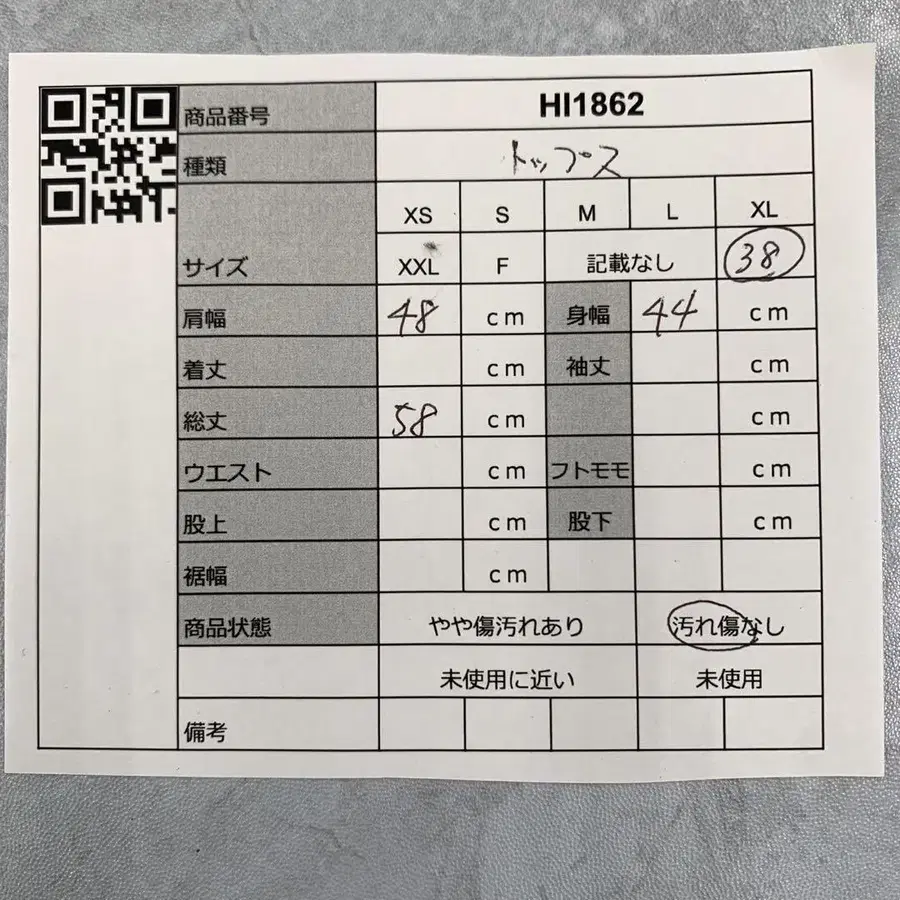 商品番号 HI1862
種類 トップス
XS S M L XL
サイズ XXL F 記載なし 38
肩幅 48 cm 身幅 44 cm
着丈 cm 袖丈 cm
総丈 58 cm cm
ウエスト cm フトモモ cm
股上 cm 股下 cm
裾幅 cm
商品状態 やや傷汚れあり 汚れ傷なし
未使用に近い 未使用
備考